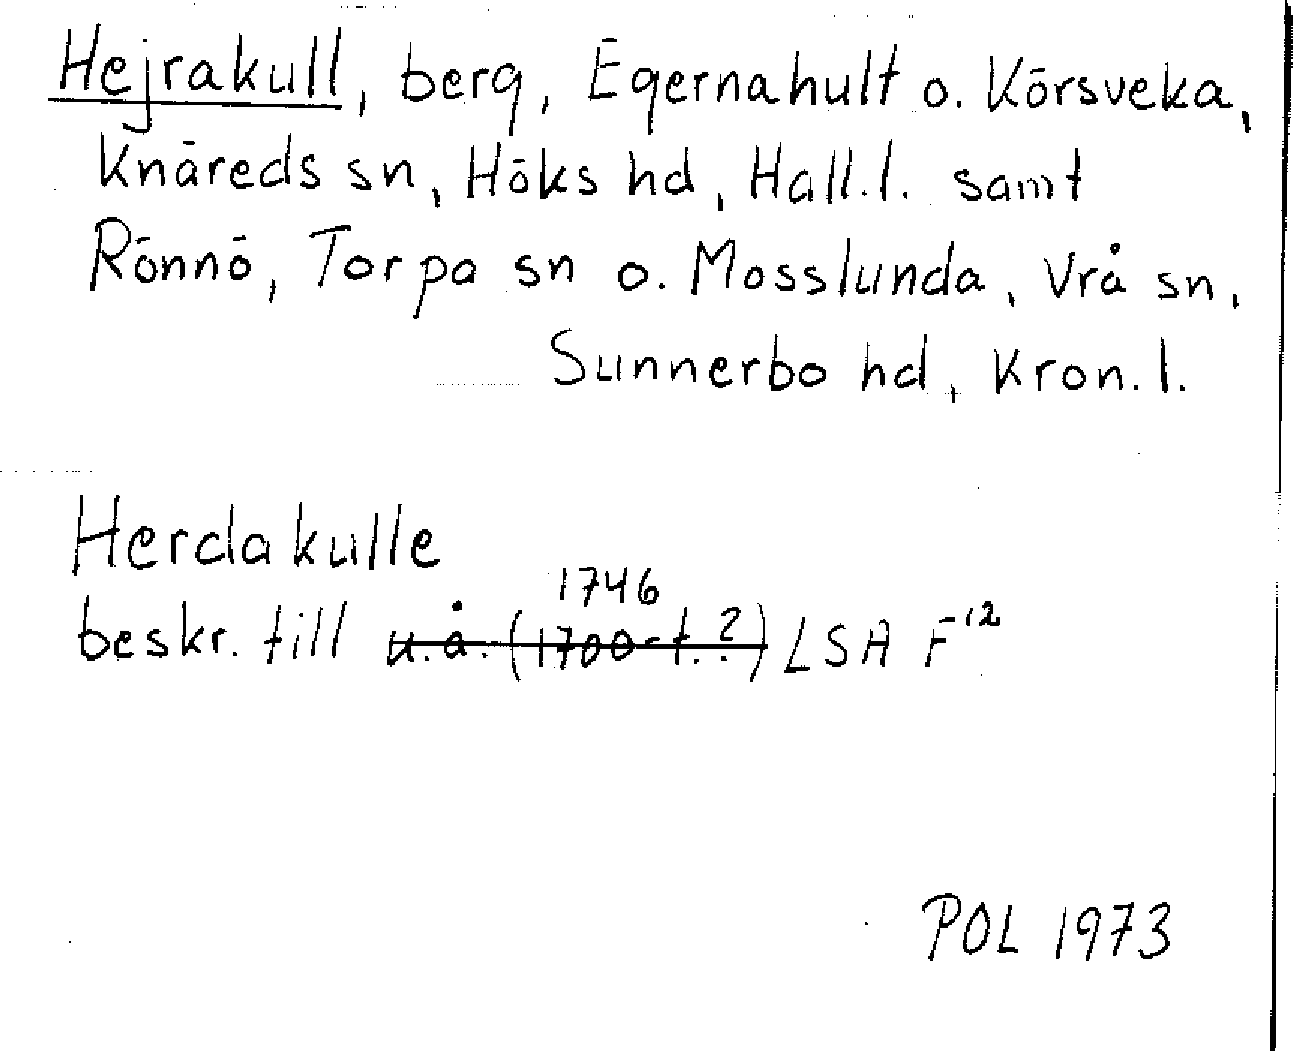 Hejrakull, berg, Egernahult o. Körsveka,
Knäreds sn, Höks hd, Hall.l. samt
Rönnö, Torpa sn o. Mosslunda, Vrå sn,
Sunnerbo hd, Kron.l.
Herdakulle
1746
beskr. till u.å. (1700-t.?) LSA F12
POL 1973